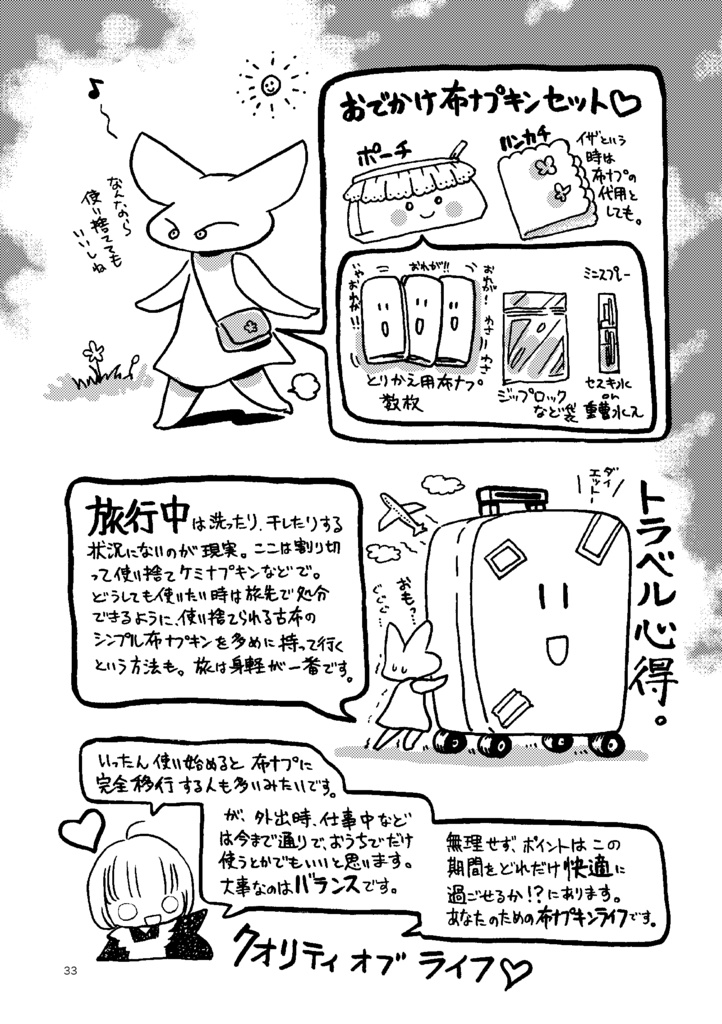 おでかけ布ナプキンセット♡
ポーチ
ハンカチ
イザという
時は
布ナプの
代用と
しても。
♪
なんなら
使い捨てても
いいしね
おれが!!
おれが!
わさ
わさ
とりかえ用布ナプ
数枚
ジップロック
など袋
ミニスプレー
セスキ水
or
重曹水入
トラベル心得。
旅行中は洗ったり、干したりする
状況にないのが現実。ここは割り切
って使い捨てケミナプキンなどで。
どうしても使いたい時は旅先で処分
できるように、使い捨てられる古布の
シンプル布ナプキンを多めに持って行く
という方法も。旅は身軽が一番です。
ダイ
エットー
おも〜
ぐぐぐ
いったん使い始めると布ナプに
完全移行する人も多いみたいです。
が、外出時、仕事中など
は今まで通りで、おうちでだけ
使うとかでもいいと思います。
大事なのはバランスです。
無理せず、ポイントはこの
期間をどれだけ快適に
過ごせるか!?にあります。
あなたのための布ナプキンライフです。
クオリティ オブ ライフ♡
33